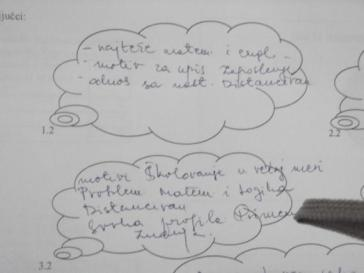 ljučci:
- najteže matem i engl -
- motiv za upis zaposlenje
- odnos sa nast. Distanciran
1.2
2.2
motivi Školovanje u većoj meri
Problem matem i logika
Distanciran
Svrha profila Primena
znanja.
3.2